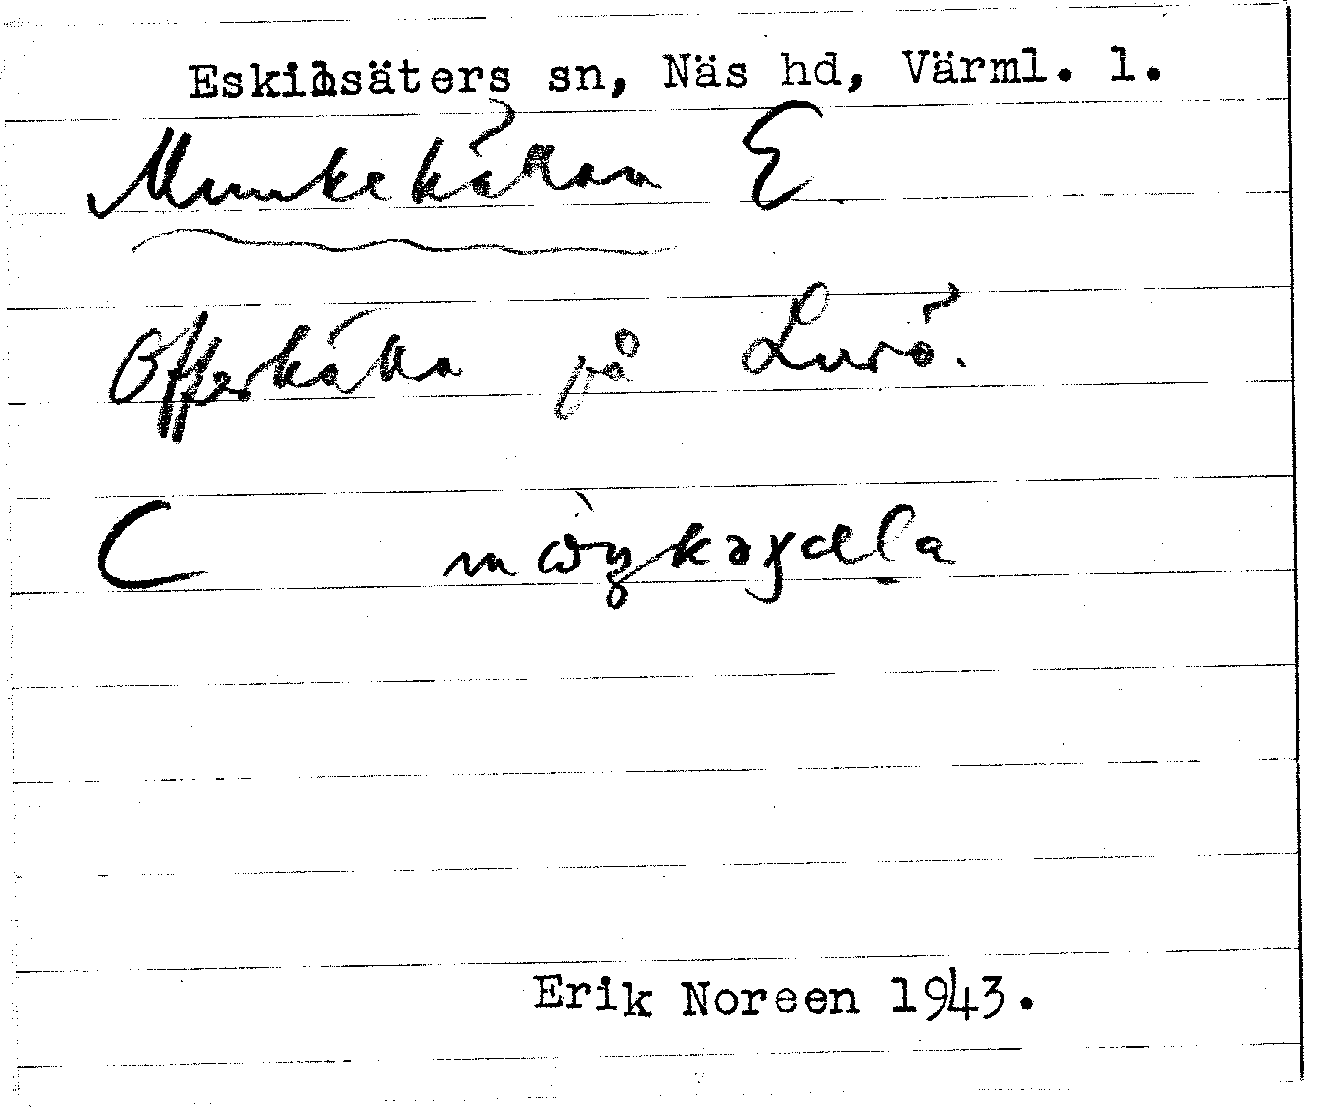 Eskilsäters sn, Näs hd, Värml. l.
Munkekällan E
Offerkälla på Lurö.
C
Erik Noreen 1943.